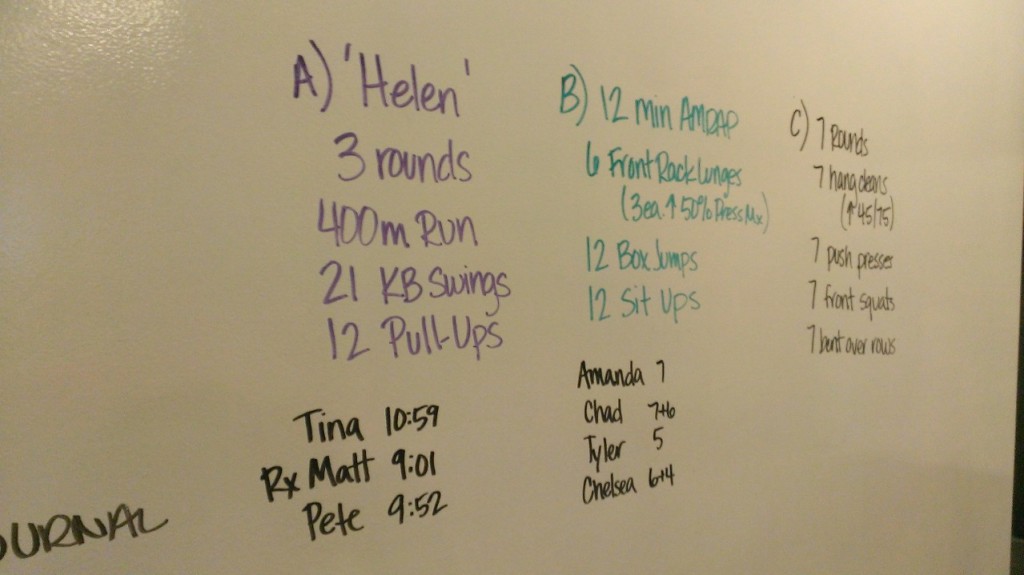 A) 'Helen'
3 rounds
400m Run
21 KB Swings
12 Pull-Ups
Tina 10:59
Rx Matt 9:01
Pete 9:52
B) 12 min AMRAP
6 Front Rack Lunges
(3ea. ↑ 50% Press Mx)
12 Box Jumps
12 Sit Ups
Amanda 7
Chad 7+6
Tyler 5
Chelsea 6+4
C) 7 Rounds
7 hang cleans
(↑ 45/75)
7 push presses
7 front squats
7 bent over rows
OURNAL